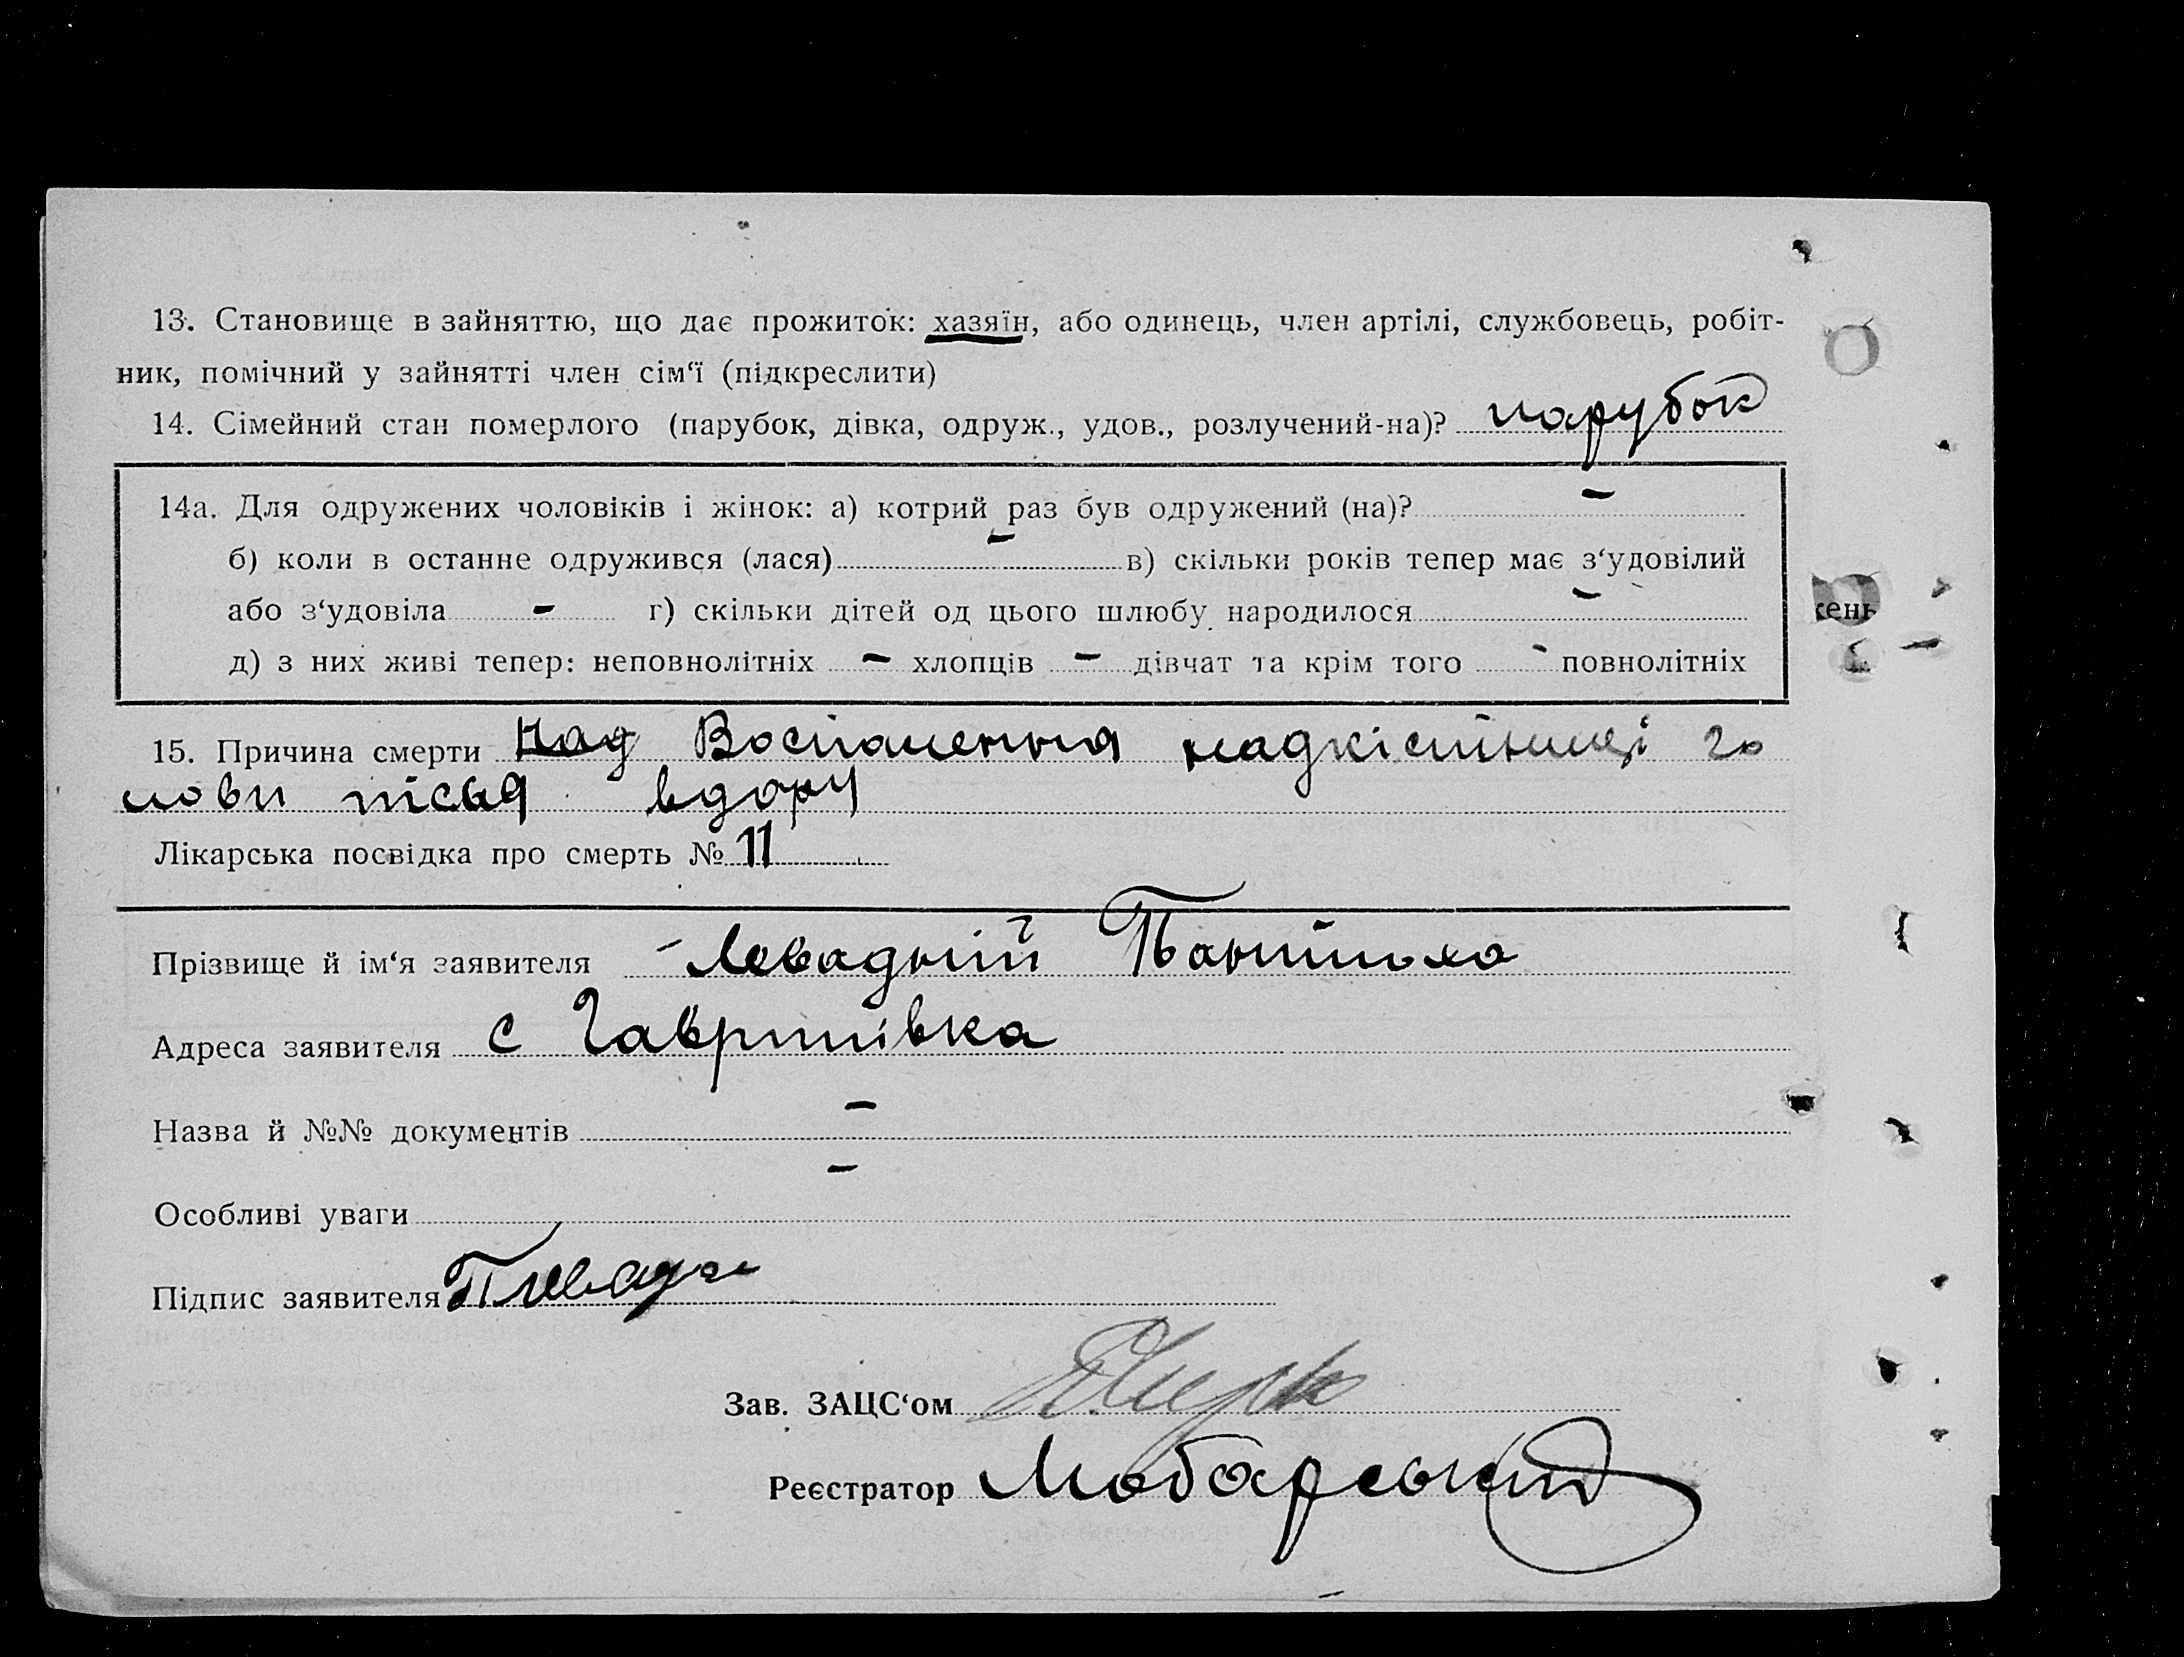 13. Становище в зайняттю, що дає прожиток: хазяїн, або одинець, член артілі, службовець, робіт-
ник, помічний у зайнятті член сім‘ї (підкреслити)
14. Сімейний стан померлого (парубок, дівка, одруж., удов., розлучений-на)? парубок
14а. Для одружених чоловіків і жінок: а) котрий раз був одружений (на)? –
б) коли в останне одружився (лася) – в) скільки років тепер має з‘удовілий
або з‘удовіла – г) скільки дітей од цього шлюбу народилося –
д) з них живі тепер: неповнолітніх – хлопців – дівчат та крім того - повнолітніх
кень
15. Причина смерти Над Воспалення надкістниці го
лови після вдару
Лікарська посвідка про смерть № 11
Прізвище й ім‘я заявителя Левадній
Адреса заявителя с Гаврилівка
Назва й №№ документів –
Особливі уваги –
Підпис заявителя
Зав. ЗАЦС‘ом
Реєстратор